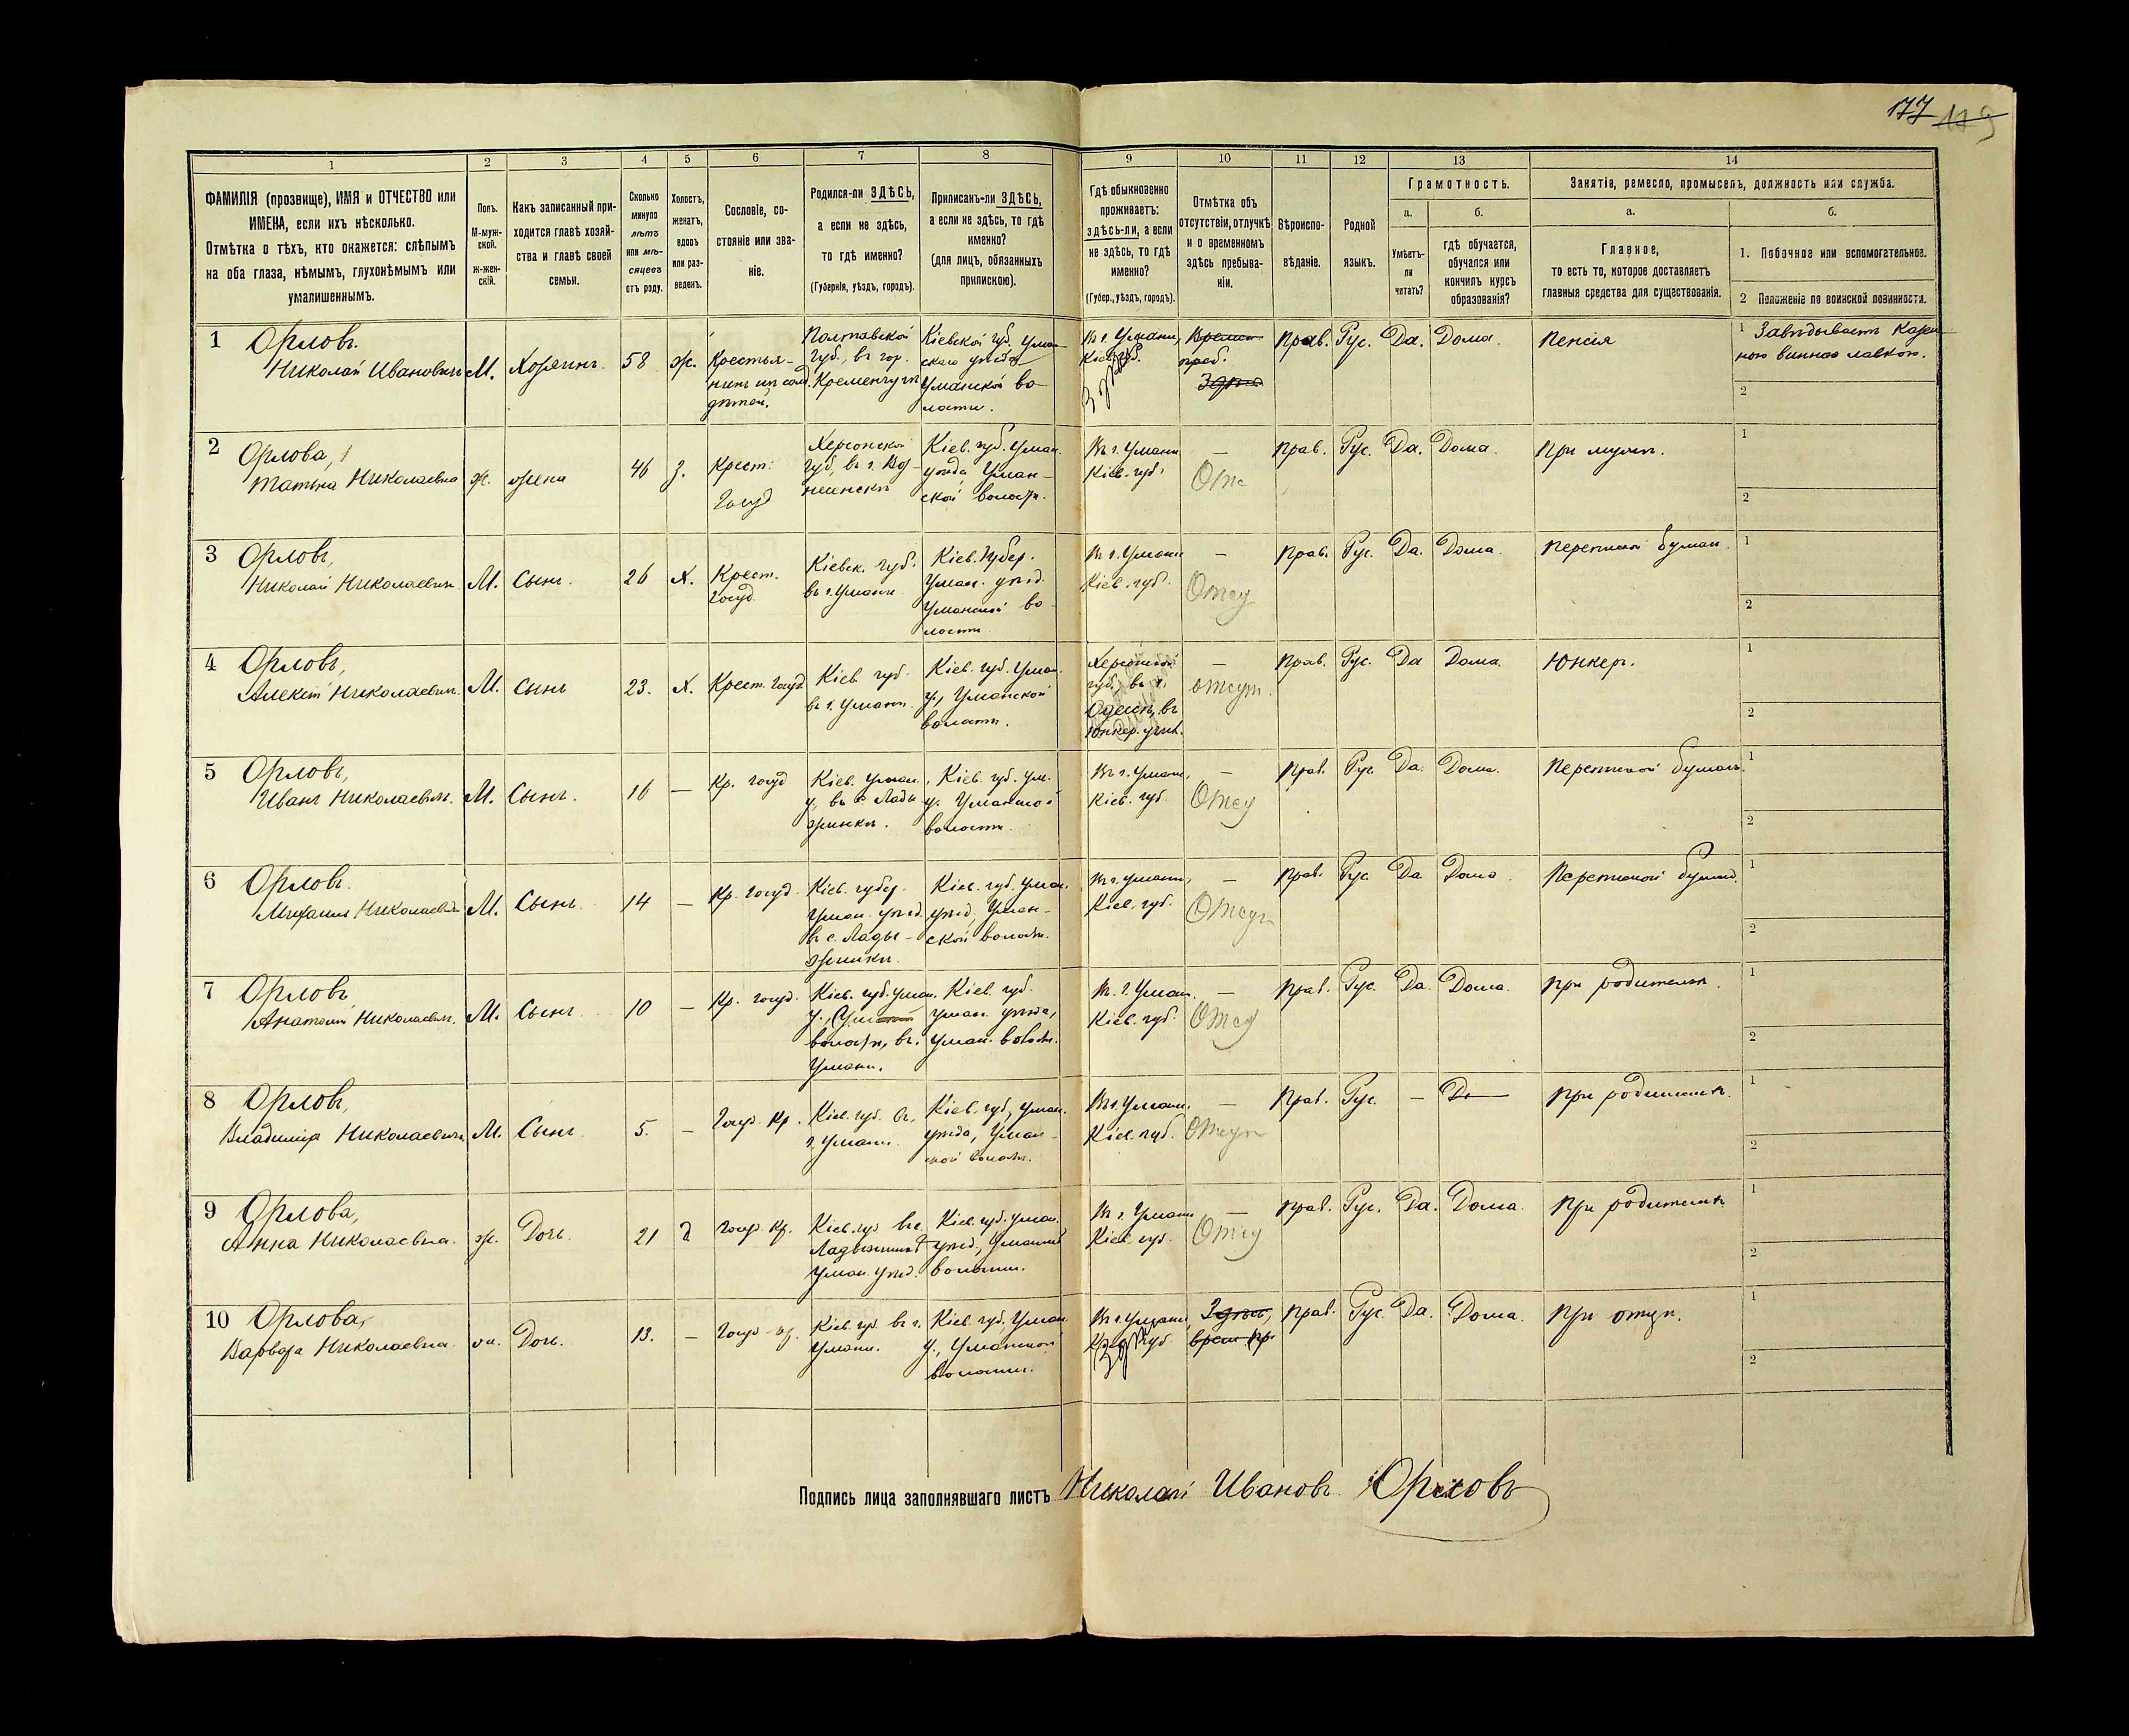 177 119
1 2 3 4 5 6 7 8 9 10 11 12 13 14
ФАМИЛІЯ (прозвище), ИМЯ и ОТЧЕСТВО или
ИМЕНА, если ихъ нѣсколько.
Отмѣтка о тѣхъ, кто окажется: слѣпымъ
на оба глаза, нѣмымъ, глухонѣмымъ или
умалишеннымъ.
Полъ.
М-муж-
ской.
ж-жен-
скій.
Какъ записанный при-
ходится главѣ хозяй-
ства и главѣ своей
семьи.
Сколько
минуло
лѣтъ
или мѣ-
сяцевъ
отъ роду.
Холостъ,
женатъ,
вдовъ
или раз-
веденъ.
Сословіе, со-
стояніе или зва-
ніе.
Родился-ли ЗДѢСЬ,
а если не здѣсь,
то гдѣ именно?
(Губернія, уѣздъ, городъ).
Приписанъ-ли ЗДѢСЬ,
а если не здѣсь, то гдѣ
именно?
(для лицъ, обязанныхъ
припискою).
Гдѣ обыкновенно
проживаетъ:
здѣсь-ли, а если
не здѣсь, то гдѣ
именно?
(Губер., уѣздъ, городъ).
Отмѣтка объ
отсутствіи, отлучкѣ
и о временномъ
здѣсь пребыва-
ніи.
Вѣроиспо-
вѣданіе.
Родной
языкъ.
Грамотность.
а.
Умѣетъ-
ли
читать?
б.
гдѣ обучается,
обучался или
кончилъ курсъ
образованія?
Занятіе, ремесло, промыселъ, должность или служба.
а.
Главное,
то есть то, которое доставляетъ
главныя средства для существованія.
б.
1. Побочное или вспомогательное.
2 Положеніе по воинской повинности.
1 Орловъ
Николай Ивановичъ М. Хозяинъ. 58 ж.
Крестья-
нинъ изъ солд.
дѣтей.
Полтавской
губ., въ гор.
Кременчугѣ
Кіевской губ. Уман-
скаго уѣзда
Уманской во-
лости.
Въ г. Умани,
Кіев. губ.
Времен
преб.
Здѣсь
Прав. Рус. Да. Дома. Пенсія
1 Завѣдываетъ Казен-
ною винною лавкою.
2
2 Орлова,
Татьяна Николаевна ж. жена 46 з.
Крест.
Госуд
Херсонской
губ, въ г. Воз-
несенскѣ
Кіев. губ. Уман.
уѣзда Уман-
ской волости.
Въ г. Умани
Кіев. губ.
—
Отс
Прав. Рус. Да. Дома. При мужѣ.
1
2
3 Орловъ,
Николай Николаевичъ М. Сынъ. 26 Х.
Крест.
Госуд.
Кіевск. губ.
въ г. Умани
Кіев. Губер.
Уман. уѣзд.
Уманской во-
лости
Въ г. Умани
Кіев. губ.
—
Отсу
Прав. Рус. Да. Дома. Перепиской бумаг.
1
2
4 Орловъ,
Алексѣй Николаевич. М. Сынъ 23. Х. Крест. Госуд
Кіев. губ.
въ г. Умани.
Кіев. губ. Уман.
у., Уманской
волости.
Херсонской
губ., въ г.
Одессѣ, въ
Юнкер. учил.
—
отсут.
Прав. Рус. Да Дома. Юнкер.
1
2
5 Орловъ,
Иванъ Николаевичъ. М. Сынъ. 16 — Кр. госуд
Кіев. Уман.
у., въ с. Лады-
жинкѣ.
Кіев. губ. Ум.
у. Уманской
волости.
Въ г. Умани,
Кіев. губ.
—
Отсу
Прав. Рус. Да. Дома. Перепиской бумагъ.
1
2
6 Орловъ.
Михаилъ Николаевичъ М. Сынъ. 14 — Кр. Госуд.
Кіев. губер.
Уман. уѣзд.
въ с. Лады-
жинкѣ.
Кіев. губ. Уман.
уѣзд, Уман-
ской волост.
Въ г. Умани,
Кіев. губ.
—
Отсут
Прав. Рус Да Дома. Перепиской бумаг.
1
2
7 Орловъ
Анатолій Николаевич. М. Сынъ. 10 — Кр. госуд.
Кіев. губ. Уман.
у., Уманской
волости, въ г.
Умани.
Кіев. губ.
Уман. уѣзда,
Уман. волост.
Въ г. Уман.
Кіев. губ.
—
Отсу
Прав. Рус. Да. Дома. При родителяхъ.
1
2
8 Орловъ,
Владиміръ Николаевичъ М. Сынъ. 5. — Госуд. Кр.
Кіев. губ. въ
г. Умани.
Кіев. губ, Уман.
уѣзда, Уман-
ской волост.
Въ г. Умани.
Кіев. губ.
—
Отсут
Прав. Рус. — При родителяхъ.
1
2
9 Орлова,
Анна Николаевна. ж. Дочь. 21 Госуд. Кр.
Кіев. губ въ с.
Ладыжинкѣ
Уман. уѣзд.
Кіев. губ. Уман.
уѣзд., Уманской
волости.
Въ г. Умани
Кіев. губ.
—
Отсу
Прав. Рус. Да. Дома. При родителяхъ
1
2
10 Орлова,
Варвара Николаевна. ж. Дочь. 13. — Госуд. кр.
Кіев. губ. въ г.
Умани.
Кіев. губ, Уман
у., Уманской
волости.
Въ г. Умани,
Кіев. губ
Здѣсь,
врем. пр.
Прав. Рус Да. Дома. При отцѣ.
1
2
Подпись лица заполнявшаго листъ Николай Ивановъ Орловъ